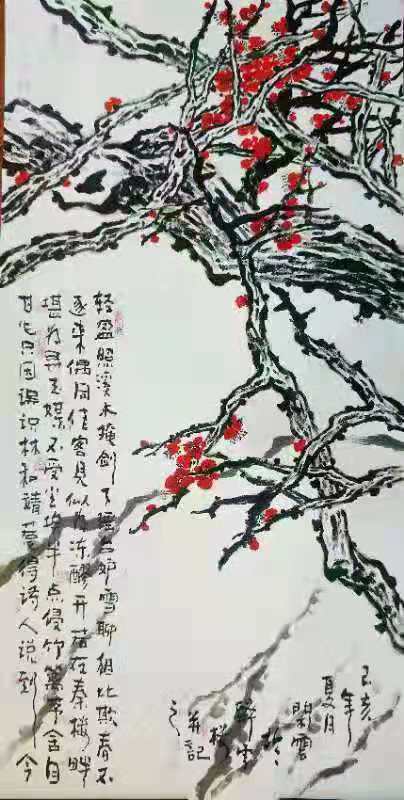 轻盈照溪水掩敛下瑶台妒雪聊相比欺春不
逐来偶同佳客见似为冻醪开若在秦楼畔
堪为弄玉媒不受尘埃半点侵竹篱茅舍自
甘心只因误识林和靖惹得诗人说到今
己亥年
夏月
閑雲
於
并記
之